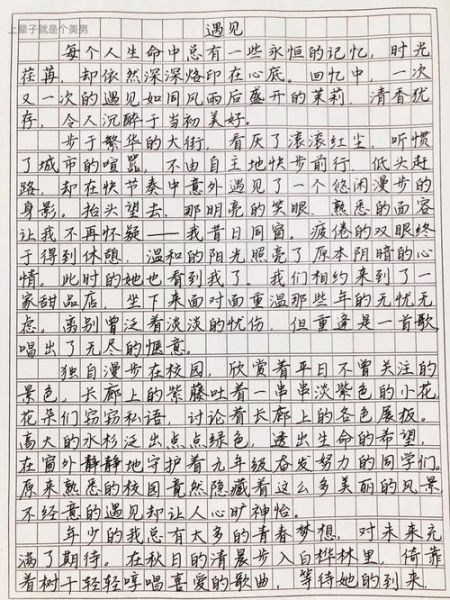 上辈子就是个美男
遇见
每个人生命中总有一些永恒的记忆，时光
荏苒，却依然深深烙印在心底。回忆中，一次
又一次的遇见如同风雨后盛开的茉莉，清香犹
存，令人沉醉于当初美好。
步于繁华的大街，看厌了滚滚红尘，听惯
了城市的喧嚣，不由自主地快步前行，低头赶
路，却在快节奏中意外遇见了一个悠闲漫步的
身影。抬头望去，那明亮的笑眼，熟悉的面容
让我不再怀疑——我昔日同窗。疲倦的双眼终
于得到休憩，温和的阳光照亮了原本阴暗的心
情。此时的她也看到我了。我们相约来到了一
家甜品店，坐下来面对面重温那些年的无忧无
虑。离别曾泛着淡淡的忧伤，但重逢是一首歌
唱出了无尽的惬意。
独自漫步在校园，欣赏着平日不曾关注的
景色，长廊上的紫藤吐着一串串淡紫色的小花
花朵们窃窃私语，讨论着长廊上的各色展板。
高大的水杉泛出点点绿色，透出生命的希望，
在窗外静静地守护着九年级奋发努力的同学们。
原来熟悉的校园竟然隐藏着这么多美丽的风景
不经意的遇见却让人心旷神怡。
年少的我总有太多的青春梦想，对未来充
满了期待。在秋日的清晨步入白桦林里，倚靠
着树干轻轻哼唱喜爱的歌曲，等待她的到来，